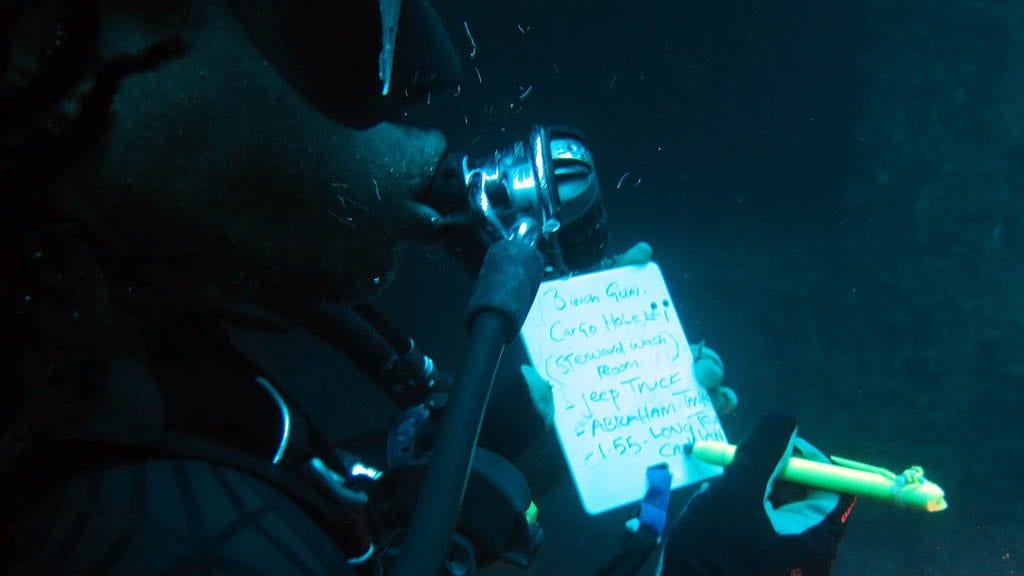 3 inch Gun.
Cargo Hole #1
(Sterward wash)
Room
- Jeep TRUCK
- ABRAHAM-TANK
- 1.55-LONG TOM
CAN